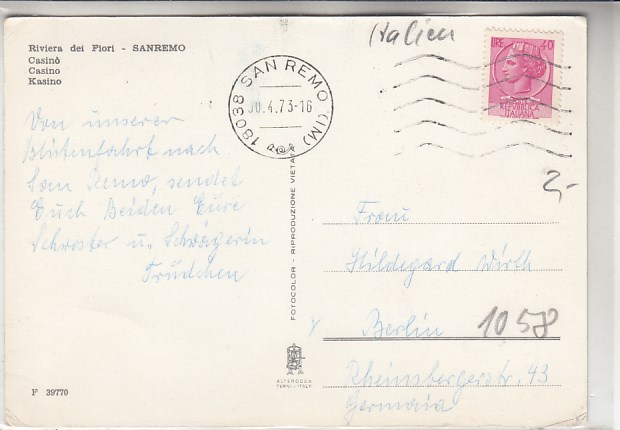 Riviera dei Fiori - SANREMO
Casinò
Casino
Kasino
Von unserer
Blütenfahrt nach
San Remo, sendet
Euch Beiden Eure
Schwester u. Schwägerin
Trüdchen
F 39770
FOTOCOLOR - RIPRODUZIONE VIETATA
ALTEROCCA
TERNI - ITALY
18038 SAN REMO (IM)
30.4.73-16
Italien
LIRE 40
REPUBBLICA
ITALIANA
2,-
Frau
Hildegard Wirth
Berlin 1058
Rheinsbergerstr. 43
Germania